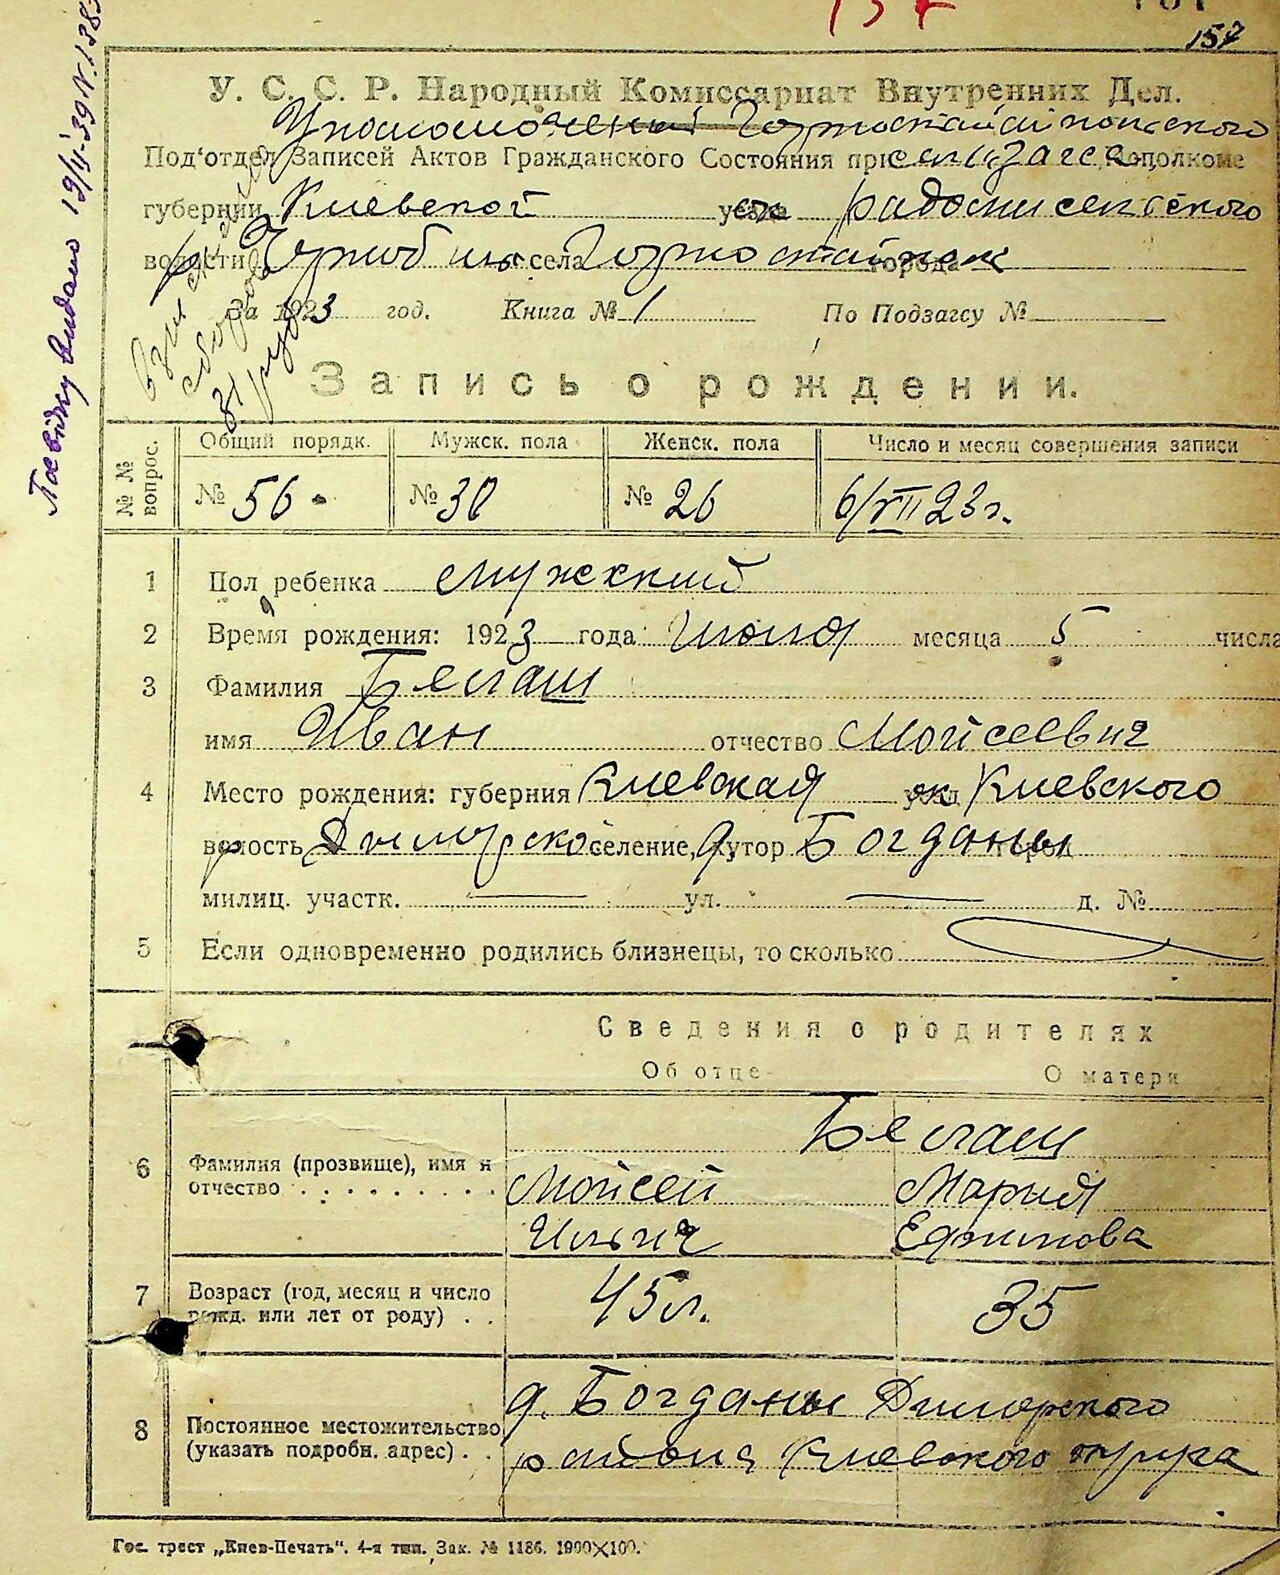 157
У. С. С. Р. Народный Комиссариат Внутренних Дел.
Под'отдел Записей Актов Гражданского Состояния при
губернии Киевской радомисельского
волости села
За 1923 год. Книга № 1 По Подзагсу №
Запись о рождении.
№ № вопрос. Общий порядк. Мужск. пола Женск. пола Число и месяц совершения записи
№ 56 № 30 № 26 6/VII 23 г.
1 Пол ребенка мужский
2 Время рождения: 1923 года Июля месяца 5 числа
3 Фамилия Белаш
имя Иван отчество Мойсеевич
4 Место рождения: губерния Киевская ок Киевского
волость Дымерско селение, хутор Богданы город
милиц. участк. — ул. — д. №
5 Если одновременно родились близнецы, то сколько
Сведения о родителях
Об отце О матери
Белаш
6 Фамилия (прозвище), имя и отчество Мойсей Мария
Ильич Ефимова
7 Возраст (год, месяц и число рожд. или лет от роду) 45 л. 35
8 Постоянное местожительство (указать подробн. адрес) д. Богданы Димерского
района Киевского округа
Гос. трест „Киев-Печать". 4-я тип. Зак. № 1186. 1900×100.